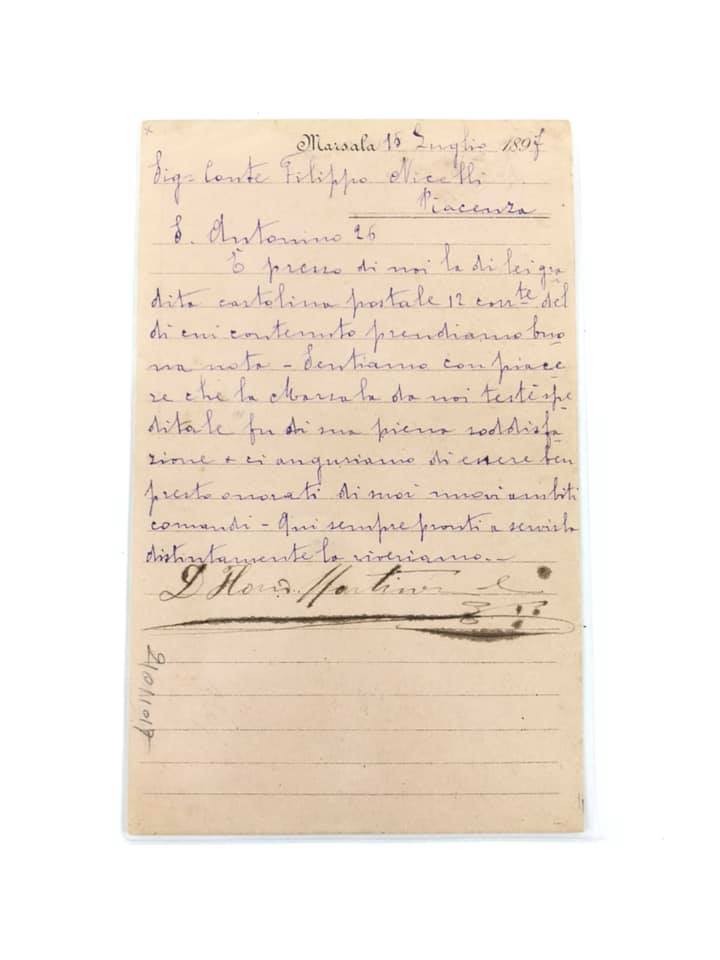 Marsala 15 Luglio 1897
Sig= Conte Filippo Nicelli
Piacenza
S. Antonino 26
È presso di noi la di lei gra
dita cartolina postale 12 corr.te del
di cui contenuto prendiamo buo
na nota - Sentiamo con piace
re che la Marsala da noi testè spe
ditale fu di sua piena soddisfa
zione e ci auguriamo di essere ben
presto onorati di suoi nuovi ambiti
comandi - Qui sempre pronti a servirla
distintamente la riveriamo. -